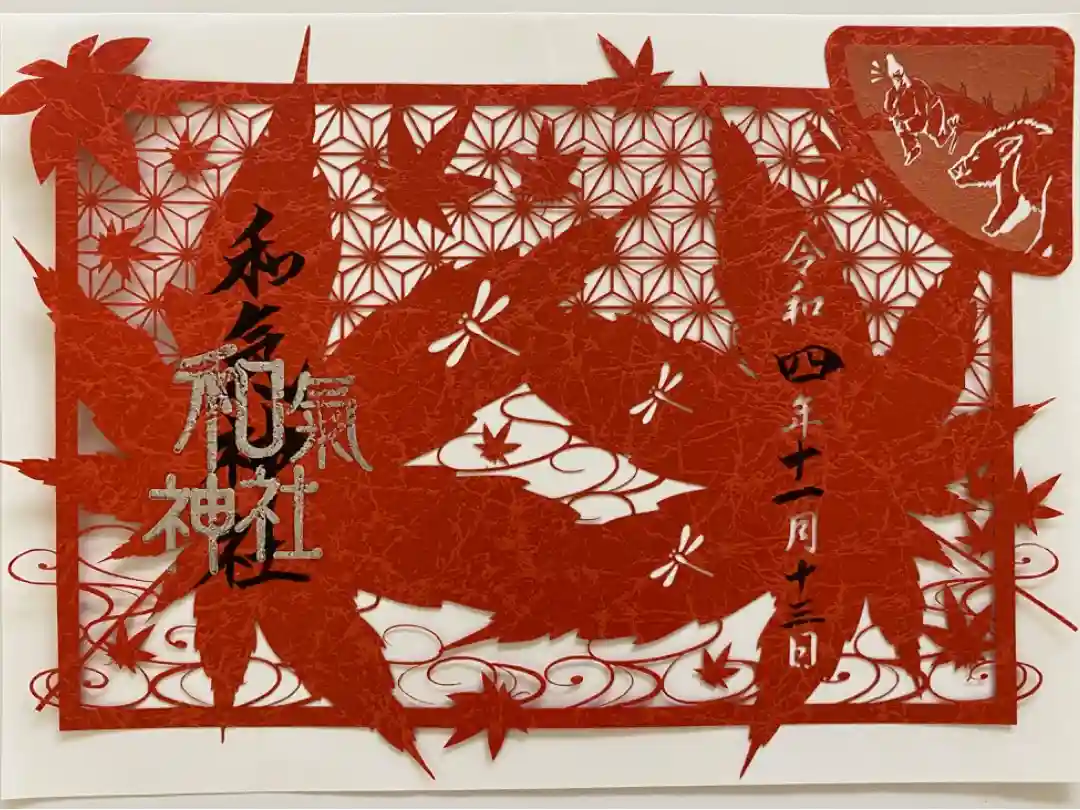 令和四年十一月十三日
和気神社
和氣
神社